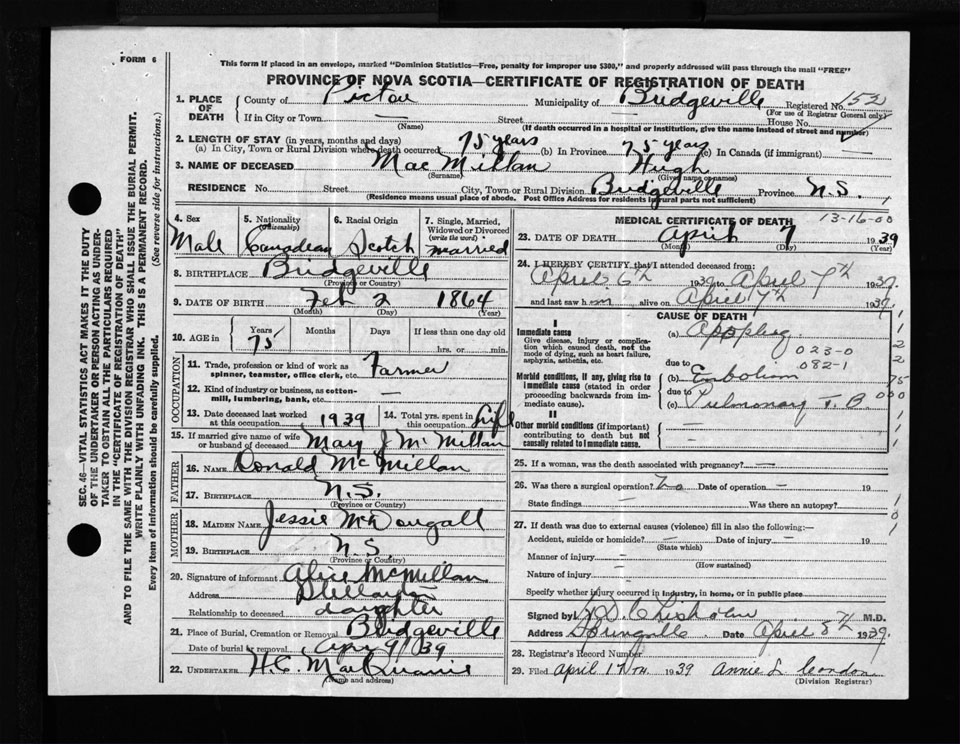 FORM 6
This form if placed in an envelope, marked "Dominion Statistics—Free, penalty for improper use $300," and properly addressed will pass through the mail "FREE"
PROVINCE OF NOVA SCOTIA—CERTIFICATE OF REGISTRATION OF DEATH
1. PLACE OF DEATH
County of Pictou Municipality of Bridgeville Registered No. 152
(For use of Registrar General only)
If in City or Town — Street — House No.
(Name) (If death occurred in a hospital or institution, give the name instead of street and number)
2. LENGTH OF STAY (in years, months and days)
(a) In City, Town or Rural Division where death occurred 75 years (b) In Province 75 years (c) In Canada (if immigrant) —
3. NAME OF DECEASED MacMillan Hugh
(Surname) (Given name or names)
RESIDENCE No. Street City, Town or Rural Division Bridgeville Province N.S.
(Residence means usual place of abode. Post Office Address for residents in rural parts not sufficient)
4. Sex Male
5. Nationality (Citizenship) Canadian
6. Racial Origin Scotch
7. Single, Married, Widowed or Divorced (write the word) married
8. BIRTHPLACE Bridgeville
(Province or Country)
9. DATE OF BIRTH Feb 2 1864
(Month) (Day) (Year)
10. AGE in Years 75 Months Days If less than one day old
hrs. or min.
OCCUPATION
11. Trade, profession or kind of work as spinner, teamster, office clerk, etc. Farmer
12. Kind of industry or business, as cotton-mill, lumbering, bank, etc. —
13. Date deceased last worked at this occupation 1939
14. Total yrs. spent in this occupation Life
15. If married give name of wife or husband of deceased Mary J McMillan
FATHER
16. NAME Donald McMillan
17. BIRTHPLACE N.S.
(Province or Country)
MOTHER
18. MAIDEN NAME Jessie McDougall
19. BIRTHPLACE N.S.
(Province or Country)
20. Signature of informant Alice McMillan
Address Stellarton
Relationship to deceased daughter
21. Place of Burial, Cremation or Removal Bridgeville
Date of burial or removal Apr 9 / 39
22. UNDERTAKER H.C.
(Name and address)
MEDICAL CERTIFICATE OF DEATH 13-16-00
23. DATE OF DEATH April 7 1939
(Month) (Day) (Year)
24. I HEREBY CERTIFY that I attended deceased from:
April 6th 1939 to April 7th 1939
and last saw him alive on April 7th 1939
CAUSE OF DEATH
I
Immediate cause
Give disease, injury or complication which caused death, not the mode of dying, such as heart failure, asphyxia, asthenia, etc.
(a)
due to 023-0
082-1
Morbid conditions, if any, giving rise to immediate cause (stated in order proceeding backwards from immediate cause).
(b) Embolism
due to
(c) Pulmonary T.B
II
Other morbid conditions (if important) contributing to death but not causally related to immediate cause.
—
—
25. If a woman, was the death associated with pregnancy? —
26. Was there a surgical operation? No Date of operation — 19
State findings — Was there an autopsy?
27. If death was due to external causes (violence) fill in also the following:
Accident, suicide or homicide? — Date of injury — 19
(State which)
Manner of injury —
(How sustained)
Nature of injury —
Specify whether injury occurred in industry, in home, or in public place
Signed by Chisholm M.D.
Address Springville Date April 8th 1939
28. Registrar's Record Number
29. Filed April 1939 Annie L Condon
(Division Registrar)
SEC. 46—VITAL STATISTICS ACT MAKES IT THE DUTY
OF THE UNDERTAKER OR PERSON ACTING AS UNDER-
TAKER TO OBTAIN ALL THE PARTICULARS REQUIRED
IN THE "CERTIFICATE OF REGISTRATION OF DEATH"
AND TO FILE THE SAME WITH THE DIVISION REGISTRAR WHO SHALL ISSUE THE BURIAL PERMIT.
WRITE PLAINLY WITH UNFADING INK. THIS IS A PERMANENT RECORD.
Every item of information should be carefully supplied. (See reverse side for instructions.)